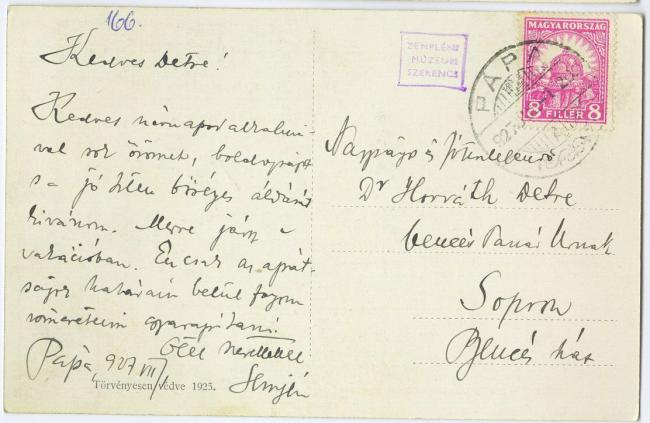 166.
Kedves Detre!
Kedves névnapod alkalmi-
val sok örömet, boldogságot
s a jó Isten bőséges áldását
kívánom. Merre jársz a
vakációban. Én csak az apát-
ságok határain belül fogom
ismereteim gyarapítani.
Ölel szeretettel
Pápa, 927 VII/
Törvényesen védve 1925.
ZEMPLÉNI
MÚZEUM
SZERENCS
MAGYARORSZÁG
8 FILLÉR 8
PÁPA
Nagyságos és Főtisztelendő
Dr Horváth Detre
bencés Tanár Úrnak
Sopron
Bencés ház